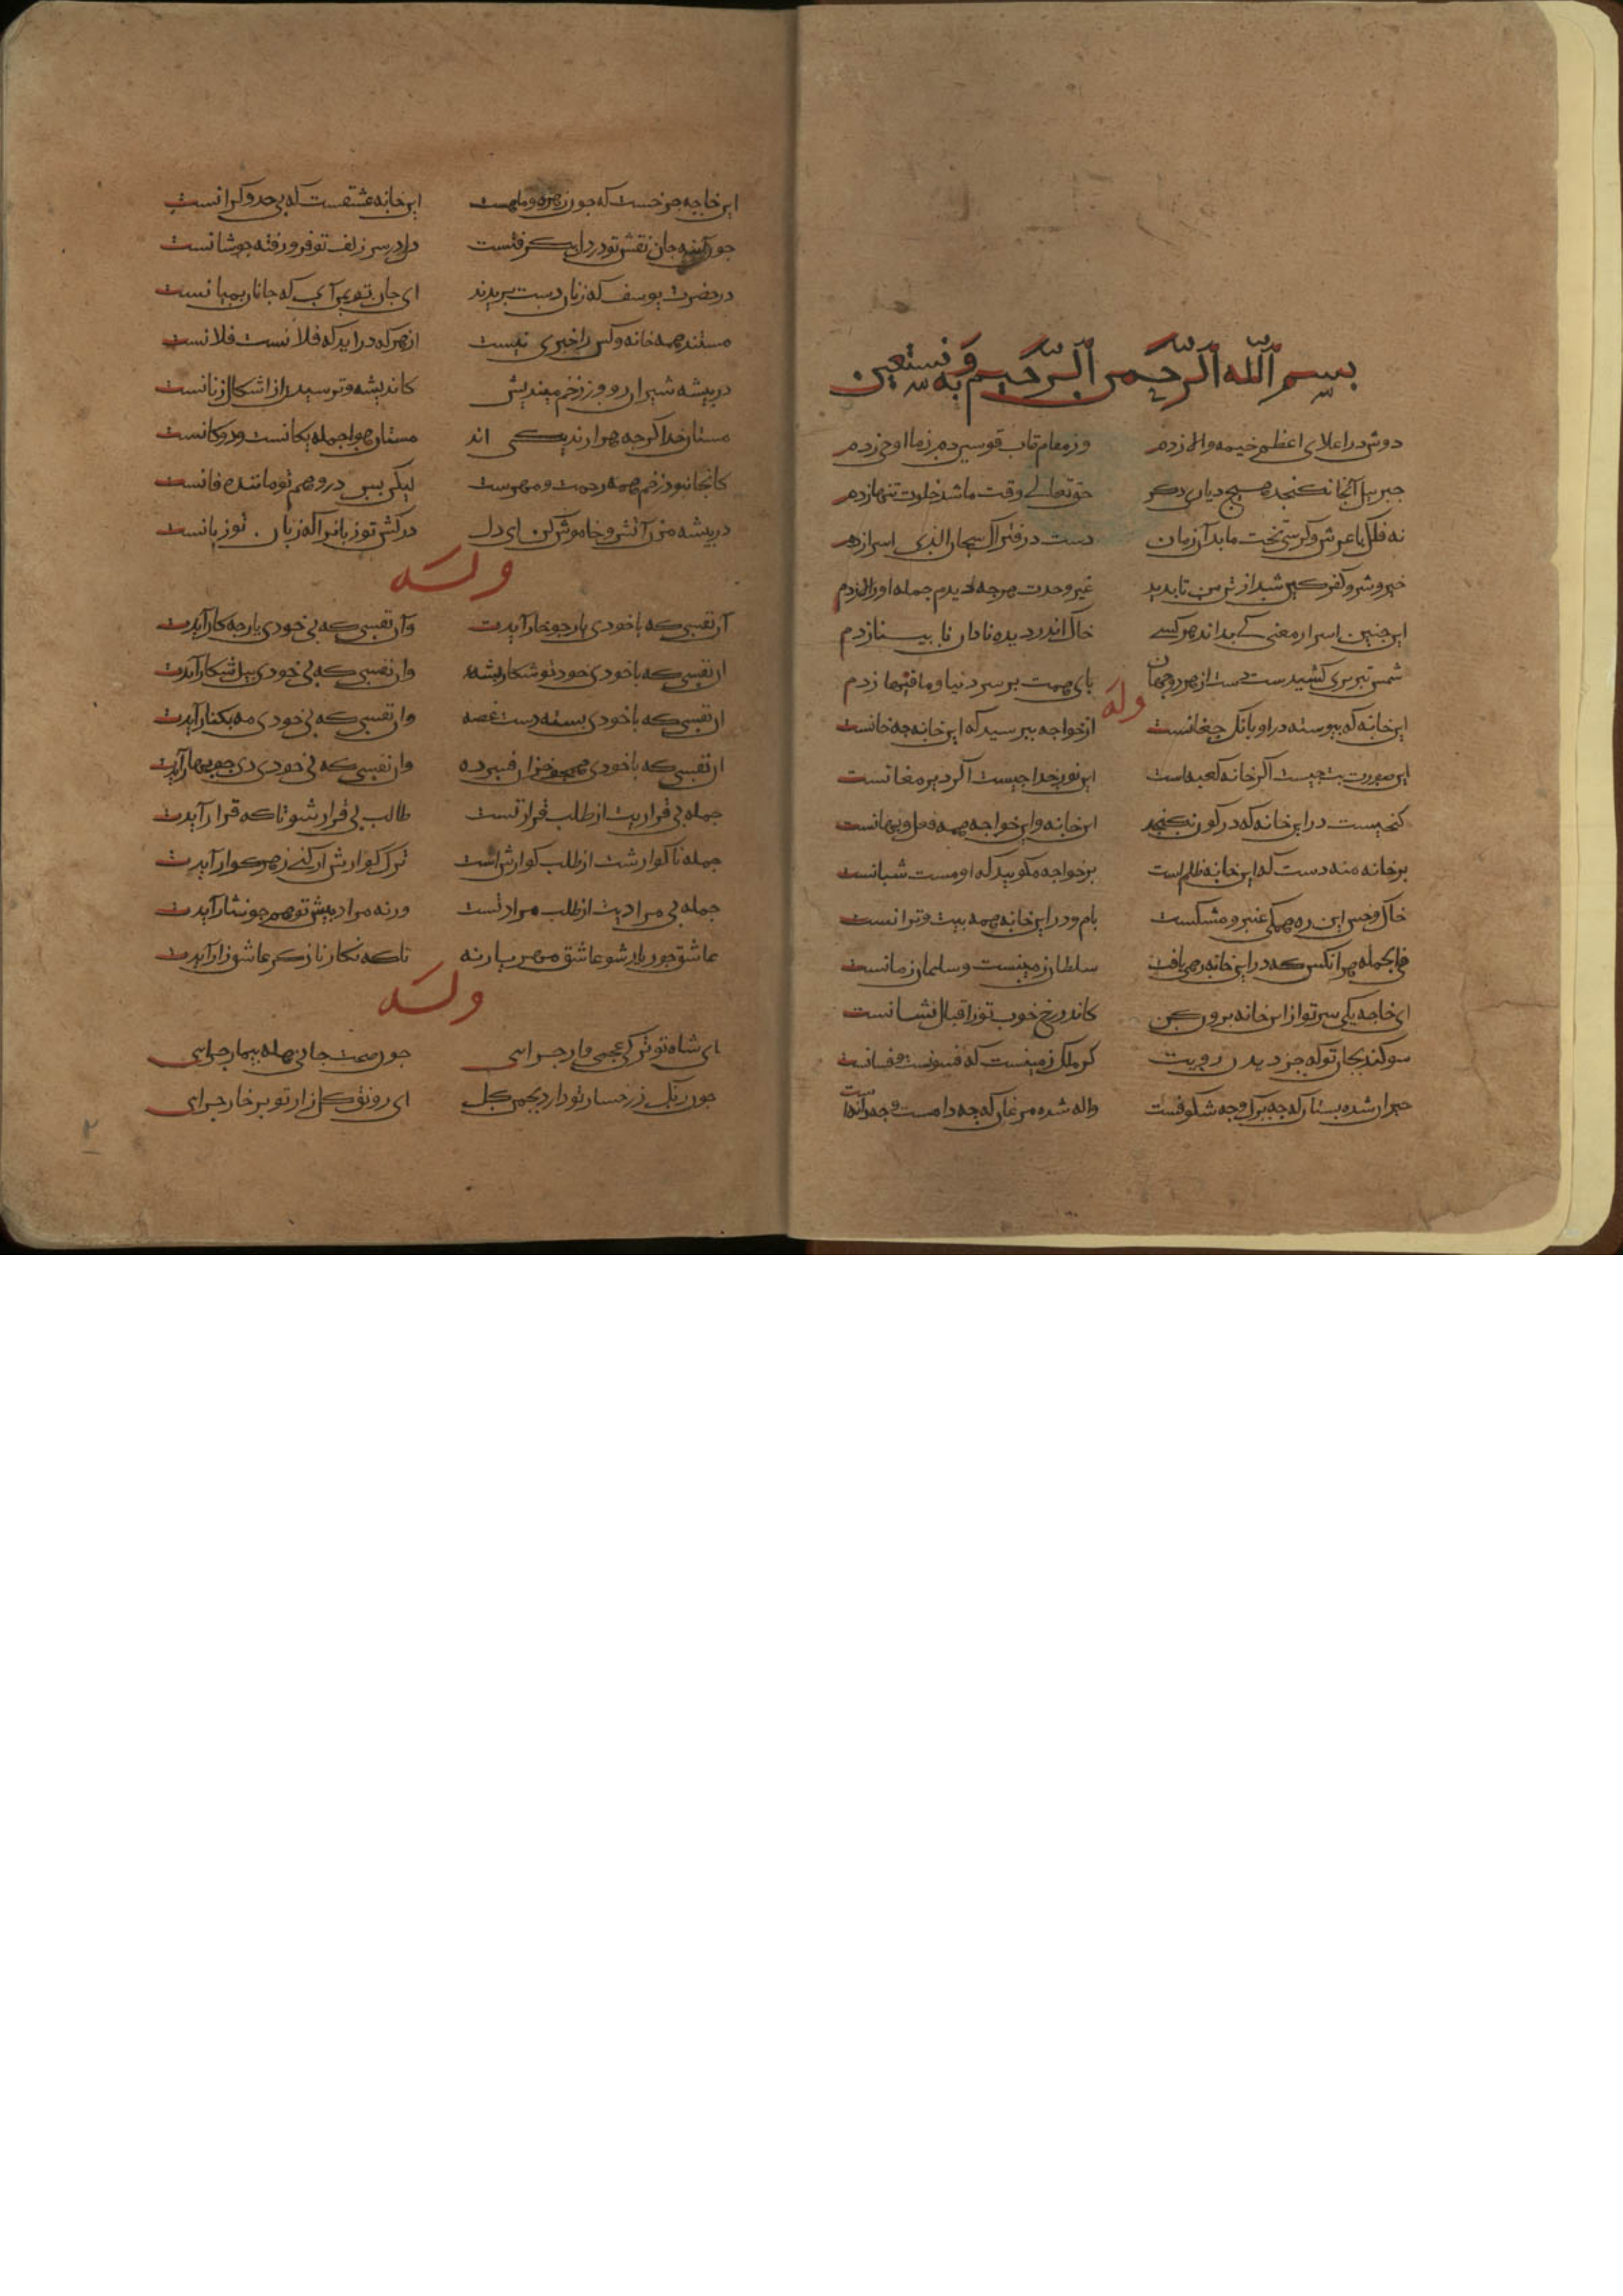 بسم الله الرحمن الرحیم وبه نستعین
دوش در اعلای اعظم خیمه والا زدم وز مقام قاب قوسین دم ز ما اوحی زدم
جبرییل آنجا نکنجد هیچ دیاری دکر حق تعالی وقت ما شد خلوت تنها زدم
نه فلک با عرش و کرسی تخت ما بد آن زمان دست در فتراک سبحان الذی اسرا زدم
خیر و شر و کفر کین شد از من تا بدید غیر وحدت هرجه دیدم جمله را اور زدم
این جنین اسرار معنی کی بداند هر کسی خاک اندر دیده نادان نا بینا زدم
شمس تبریزی کشیدست دست از هر دو جهان بای همت بر سر دنیا و مافیها زدم
وله
این خانه که بیوسته در او بانک جغانست از خواجه ببرسید که این خانه جه خانست
این صورت بت جیست اکر خانه کعبه است این نور خدا جیست اکر دیر مغانست
کنجیست در این خانه که در کون نکنجد این خانه و این خواجه همه فعل و بهانست
بر خانه منه دست که این خانه طلسم است بر خواجه مکویید که او مست شبانست
خاک و خس این ره همکی عنبر و مشکست بام و در این خانه همه بیت و ترانست
فی الجمله هر آنکس که در این خانه رهی یافت سلطان زمینست و سلیمان زمانست
ای خاجه یکی سر تو از این خانه برون کن کاندر رخ خوب تو ز اقبال نشانست
سوکند بجان تو که جز دیدن رویت کر ملک زمینست که فسونست و فسانست
حیران شده بستان که جه برک و جه شکوفست واله شده مرغان که جه دامست و جه دانه است
این خاجه جرخست که جون زهره و ماهست این خانه عشقست که بی حد و کرانست
جون آینه جان نقش تو در دل بکرفتست دل در سر زلف تو فرو رفته جو شانست
در حضرت یوسف که زنان دست بریدند ای جان تو بمن آی که جانان بمیانست
مستند همه خانه و کس را خبری نیست از هر که در اید که فلانست فلانست
در بیشه شیران رو وز زخم میندیش کاندیشه و ترسیدن از اشکال زنانست
مستان خدا کرجه هزارند یکی اند مستان هوا جمله یکانست و دوکانست
کانجا نبود زخم همه رحمت و مهرست لیکن بس در وهم تو ماننده فانست
در بیشه مزن آتش و خاموش کن ای دل در کش تو زبانرا که زبان تو زبانست
وله
آن نفسی که باخودی یار جو خار آیدت وآن نفسی که بی خودی یار جه کار آیدت
ان نفسی که باخودی خود تو شکار بشه وان نفسی که بی خودی بیل شکار آیدت
ان نفسی که باخودی بسته دست غصه وان نفسی که بی خودی مه بکنار آیدت
ان نفسی که باخودی همجو خزان فسرده وان نفسی که بی خودی دی جو بهار آیدت
جمله بی قراریت از طلب قرار تست طالب بی قرار شو تا که قرار آیدت
جمله ناکوارشت از طلب کوارش است ترک کوارش ار کنی زهر کوار آیدت
جمله بی مرادیت از طلب مراد تست ورنه مراد بیش تو همجو نثار آیدت
عاشق جور یار شو عاشق مهر یار نه تا که نکار ناز کر عاشق زار آیدت
وله
ای شاه تو ترکی عجمی وار جرایی جون صحت جانی هله بیمار جرایی
جون رنک ز رخسار تو دارد بجمن کل ای رونق کلزار تو بر خار جرایی
۲